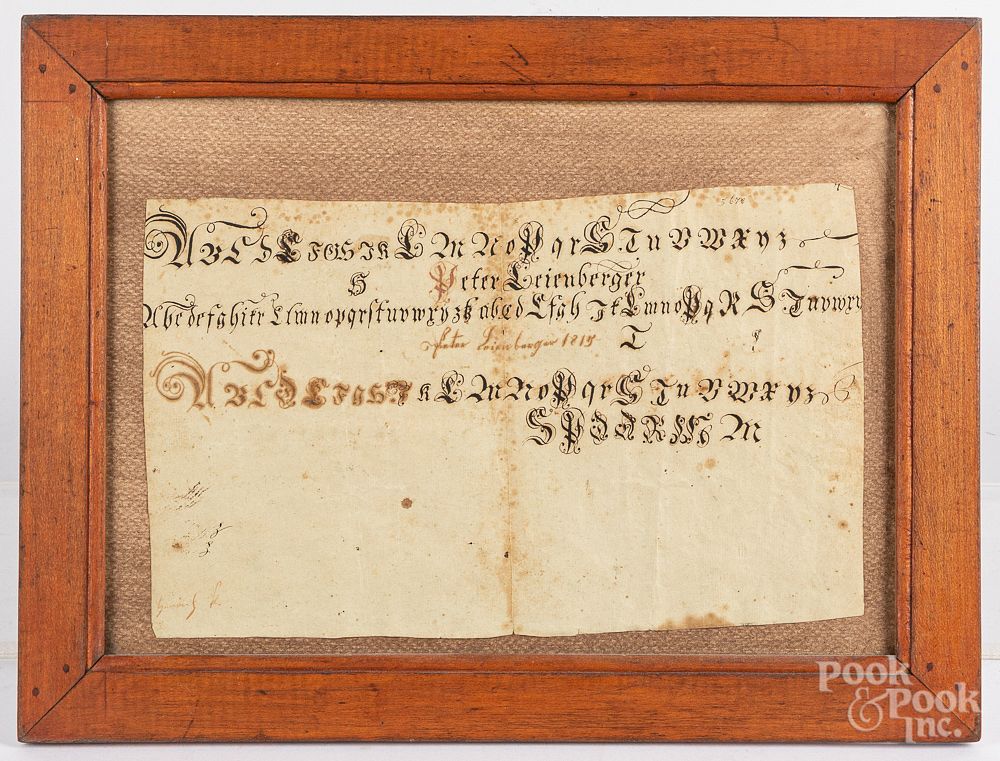 A B C D E F G H I K L M N O P q r S T u V W x y z
S Peter Leienberger
A b c d e f g h i k l m n o p q r s t u v w x y z tz a b c d E f g h I k L m n o P q R S T u v w x y
Peter Leienberger 1815 T
A B C D E F G H I K L M N O P q r S T u V W x y z
S P R W M
POOK & POOK Inc.